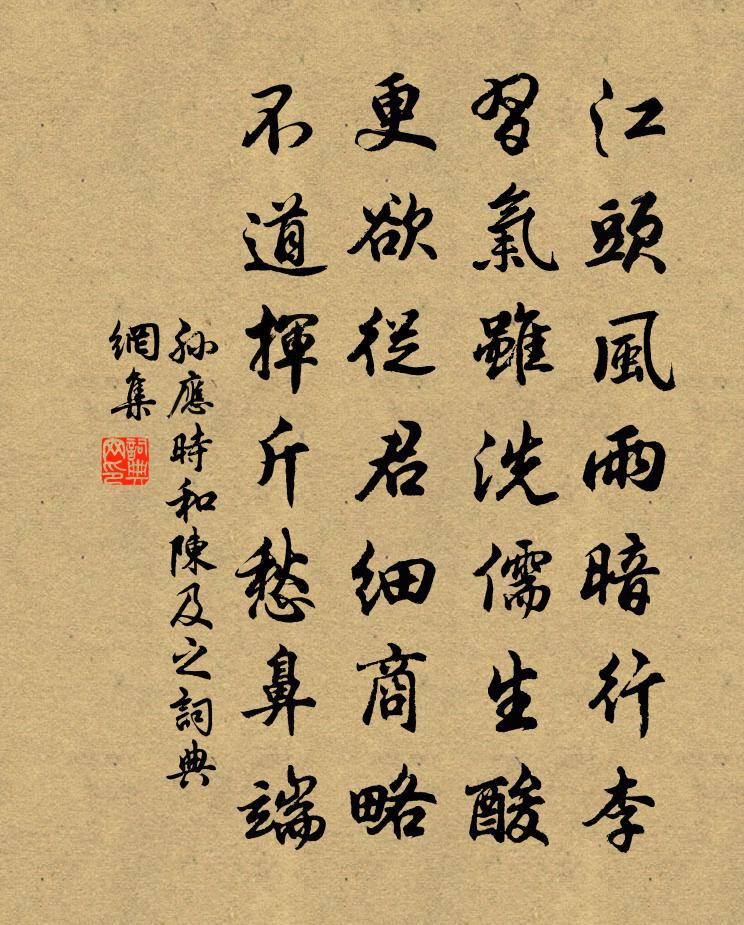 江頭風雨暗行李
習氣雖洗儒生酸
更欲從君細商略
不道揮斤愁鼻端
孫應時和陳及之詞典
網集
詞典網印